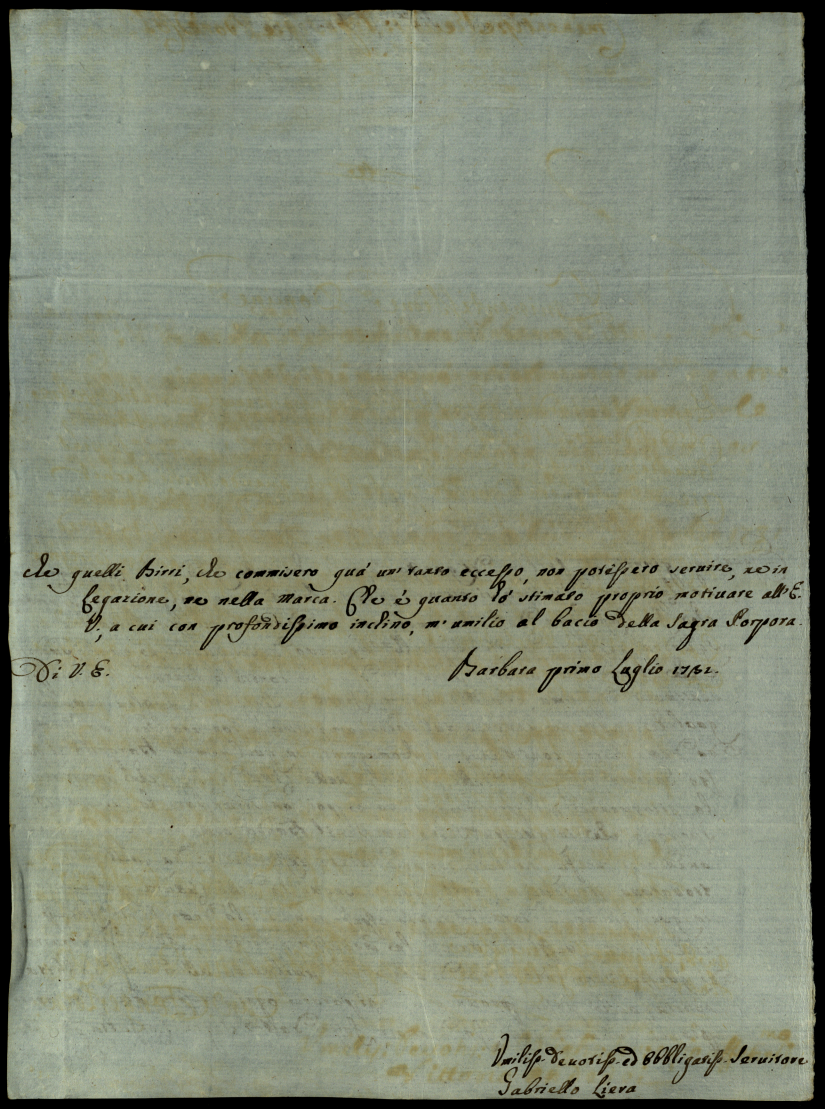 che quelli Birri, che commisero quà un' tanto eccesso, non potessero servire, ne in
Legazione, ne nella Marca. Che è quanto hò stimato proprio motivare all' E.
V., a cui con profondissimo inclino, m' umilio al bacio della Sagra Porpora.
Di V. E.
Barbara primo Luglio
Umiliss. Devotiss. ed Obbligatiss. Servitore
Gabriello Liera